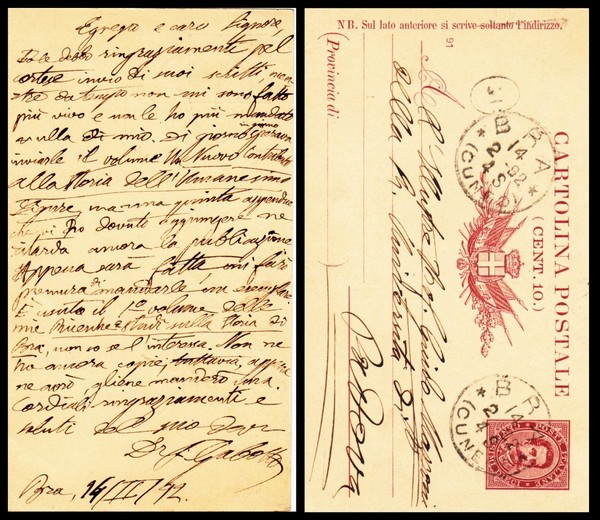 Egregio e caro Signore,
Io le debbo ringraziamenti pel
cortese invio di suoi scritti
che da tempo non mi sono fatto
più vivo e non le ho più mandato
nulla di mio. Di giorno in giorno speravo
inviarle il volume Un Nuovo Contributo
alla Storia dell'Umanesimo
Ligure, ma una quinta appendice
che vi ho dovuto aggiungere ne
ritarda ancora la pubblicazione
Appena sarà fatta mi farò
premura di mandarle un esemplare
È uscito il 1º volume delle
mie Ricerche e Studi sulla Storia di
Bra, non so se l'interessa. Non ne
ho ancora copie, tuttavia, appena
ne avrò, gliene manderò una.
Cordiali ringraziamenti e
saluti dal suo dev
Dr. F. Gabotto
Bra, 14/II/92.
NB. Sul lato anteriore si scrive soltanto l'indirizzo.
91
CARTOLINA POSTALE
(CENT. 10.)
All'Illustre Prof. Guido Mazzoni
della R. Università di
Padova
(Provincia di
)
BRA
14
2-92
4 S
* (CUNEO) *
BRA
14
2-92
4 S
* (CUNEO) *
POSTE ITALIANE
DIECI